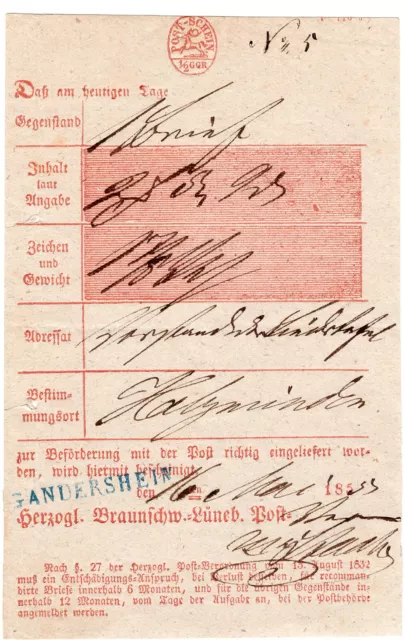 POST-SCHEIN
1/2 GGR
No. 5
Daß am heutigen Tage
Gegenstand
1 Brief
Inhalt
laut
Angabe
Zeichen
und
Gewicht
Adressat
Vorstand der Liedertafel
Bestim-
mungsort
Holzminden
zur Beförderung mit der Post richtig eingeliefert wor-
den, wird hiermit bescheinigt.
GANDERSHEIM
den 16. ten Mai 185
Herzogl. Braunschw.-Lüneb. Post-
Nach §. 27 der Herzogl. Post-Verordnung vom 13. August 1832
muß ein Entschädigungs-Anspruch, bei Verlust desselben, für recomman-
dirte Briefe innerhalb 6 Monaten, und für die übrigen Gegenstände in-
nerhalb 12 Monaten, vom Tage der Aufgabe an, bei der Postbehörde
angemeldet werden.